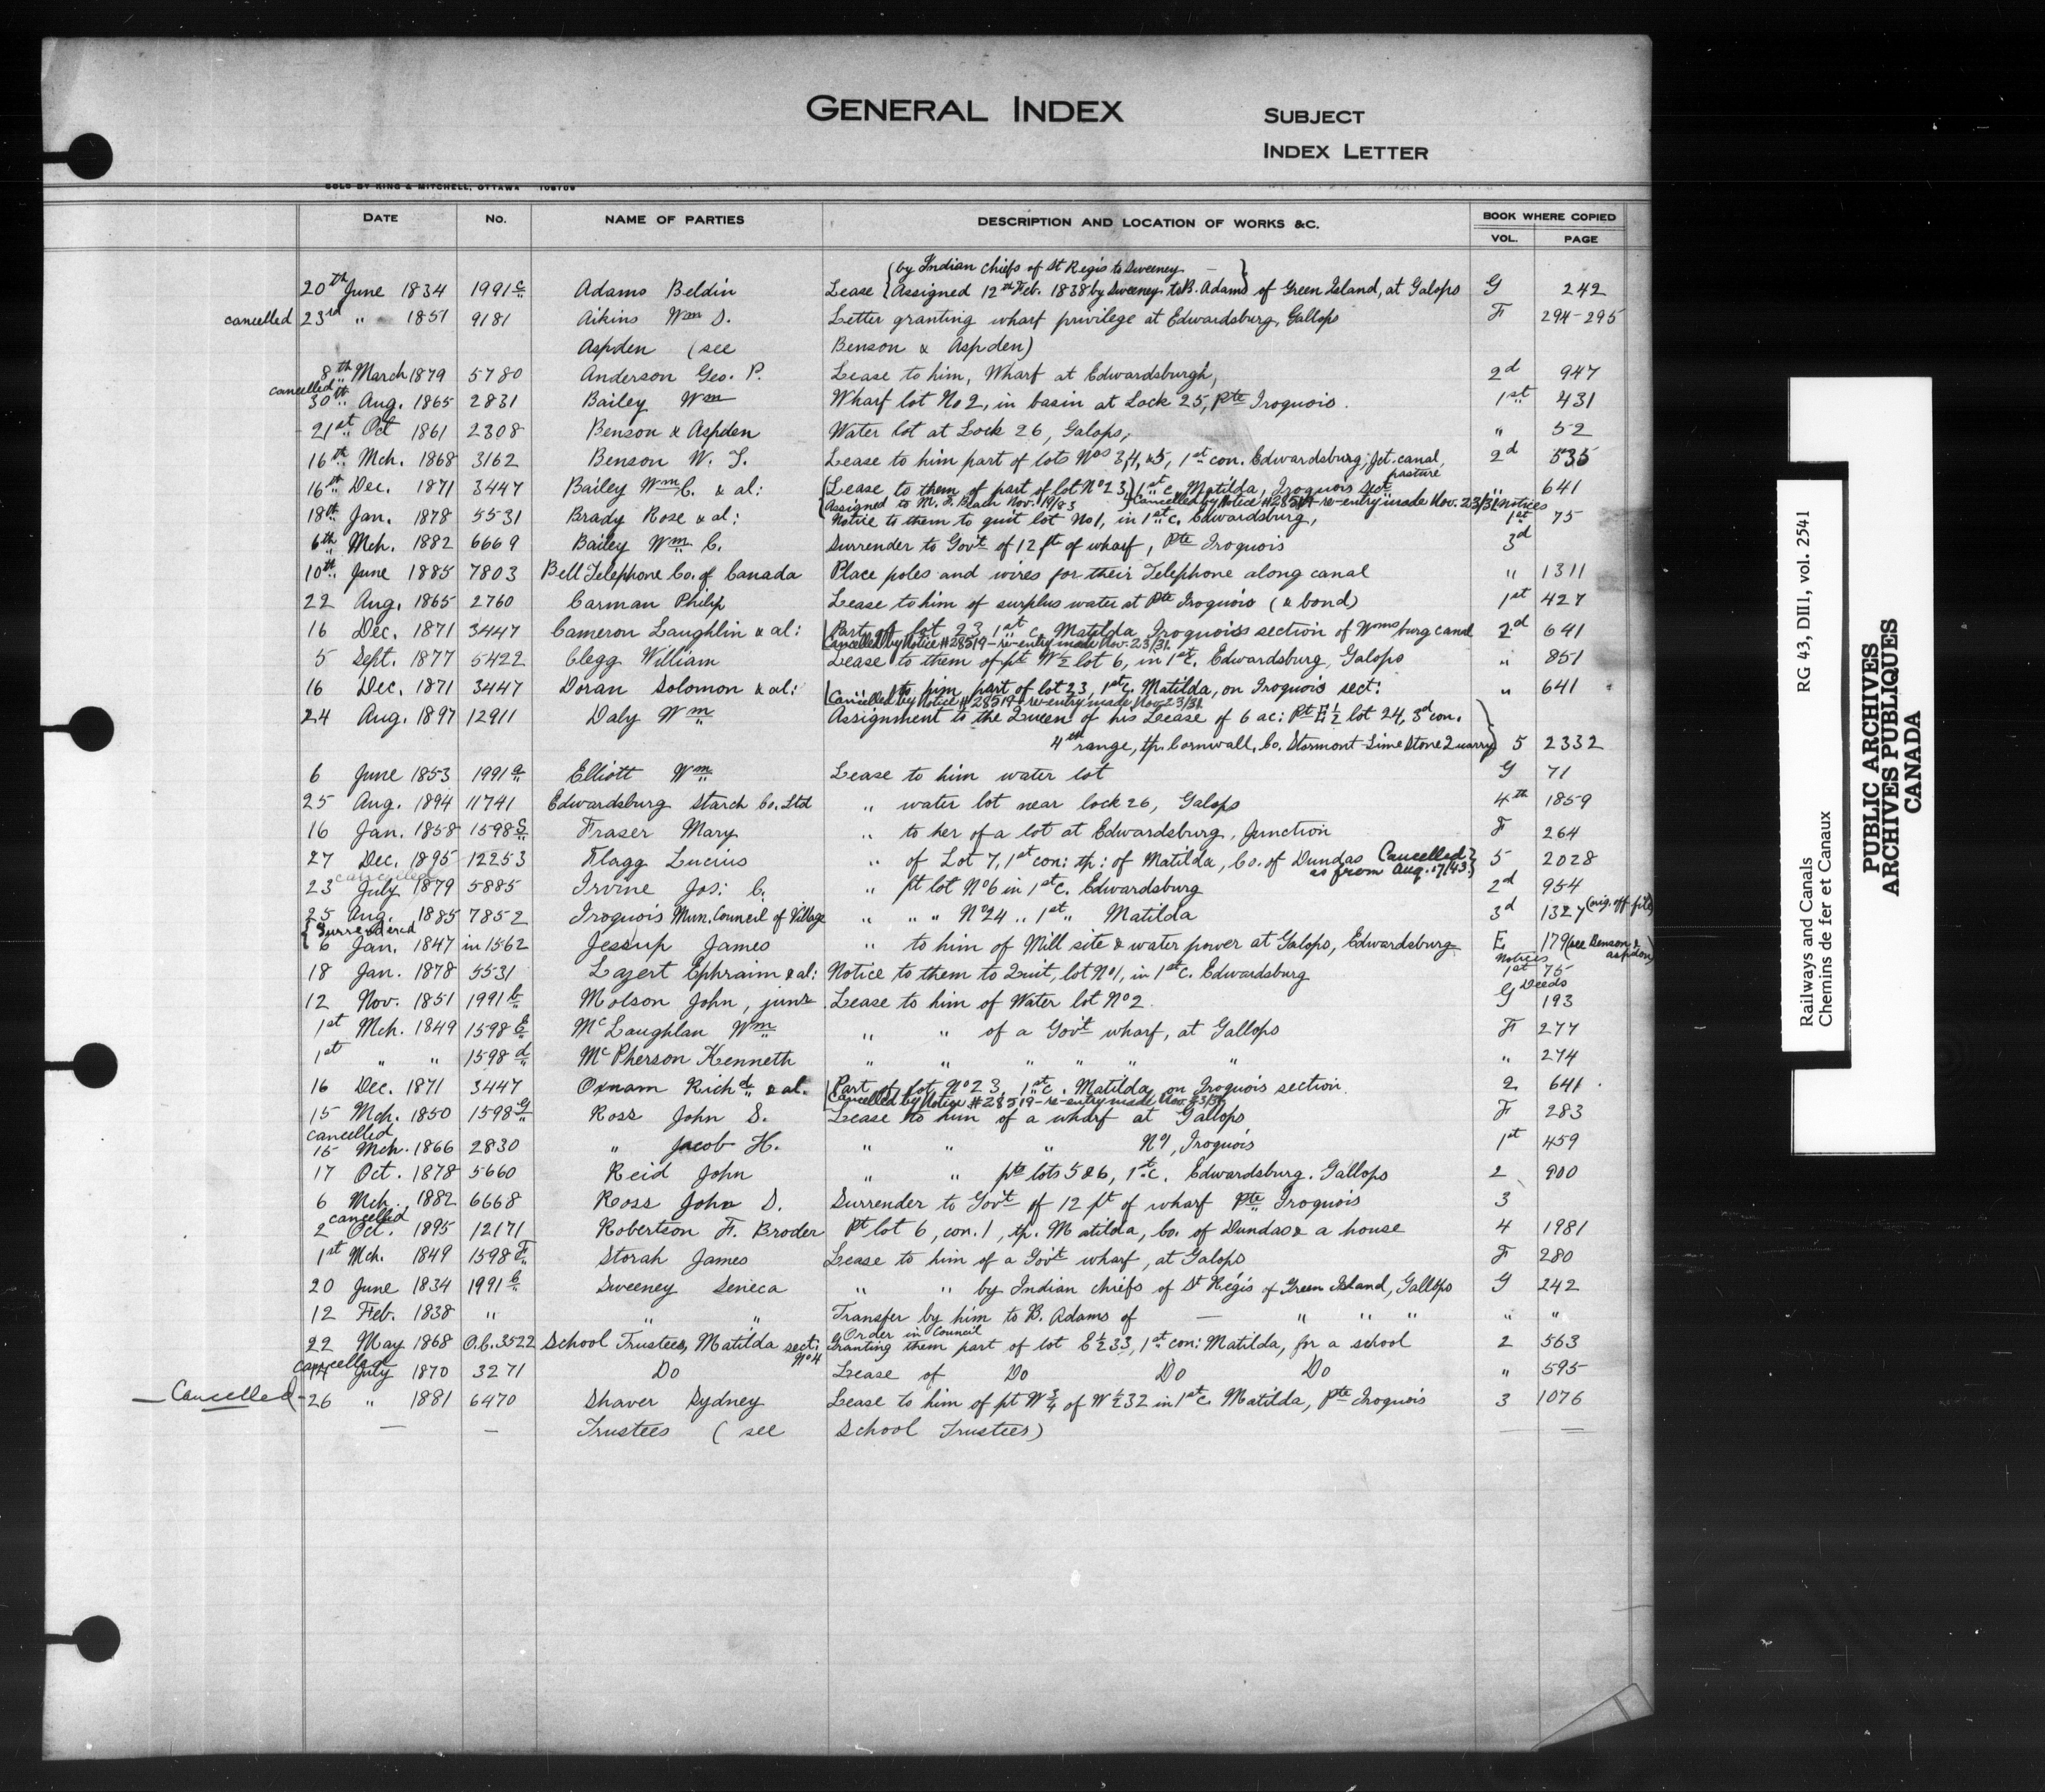 GENERAL INDEX
SUBJECT
INDEX LETTER
SOLD BY KING & MITCHELL, OTTAWA
DATE No. NAME OF PARTIES DESCRIPTION AND LOCATION OF WORKS &C. BOOK WHERE COPIED
VOL. PAGE
(by Indian chiefs of St Regis to Sweeney —
20th June 1834 1991 c Adams Beldin Lease {Assigned 12th Feb. 1838 by Sweeney to B. Adams} of Green Island, at Galops G 242
cancelled 23rd " 1851 9181 Aikins Wm S. Letter granting wharf privilege at Edwardsburg, Gallops F 294-295
Aspden (see Benson & Aspden)
8th March 1879 5780 Anderson Geo. P. Lease to him, Wharf at Edwardsburgh, 2d 947
cancelled
30th Aug. 1865 2831 Bailey Wm Wharf lot No 2, in basin at Lock 25, Pte Iroquois. 1st 431
21st Oct 1861 2308 Benson & Aspden Water lot at Lock 26, Galops, " 52
16th Mch. 1868 3162 Benson W. T. Lease to him part of lots Nos 3,4, &5, 1st con. Edwardsburg, Jct. canal, 2d 535
pasture
16th Dec. 1871 3447 Bailey Wm C. & al: (Lease to them of part of lot No 23, 1st c. Matilda, Iroquois Sect. " 641
Assigned to M. F. Beach Nov. 19/83 } Cancelled by Notice #28519 re-entry made Nov. 23/31 notices
18th Jan. 1878 5531 Brady Rose & al: Notice to them to quit lot No 1, in 1st c. Edwardsburg, 1st 75
6th Mch. 1882 6669 Bailey Wm C. Surrender to Gov't of 12 ft of wharf, Pte Iroquois 3d
10th June 1885 7803 Bell Telephone Co. of Canada Place poles and wires for their Telephone along canal " 1311
22 Aug. 1865 2760 Carman Philip Lease to him of surplus water at Pte Iroquois (& bond) 1st 427
16 Dec. 1871 3447 Cameron Laughlin & al: Part of lot 23 1st c. Matilda Iroquois section of Wmsburg canal 2d 641
Cancelled by Notice #28519 - re-entry made Nov. 23/31.
5 Sept. 1877 5422 Clegg William Lease to them of pt W½ lot 6, in 1st c. Edwardsburg, Galops " 851
16 Dec. 1871 3447 Doran Solomon & al: " to him part of lot 23, 1st c. Matilda, on Iroquois sect: " 641
Cancelled by Notice #28519 re-entry made Nov. 23/31
24 Aug. 1897 12911 Daly Wm Assignment to the Queen of his Lease of 6 ac: Pt E½ lot 24, 3d con.
4th range, tp. Cornwall, Co. Stormont - Lime Stone Quarry 5 2332
6 June 1853 1991 a Elliott Wm Lease to him water lot G 71
25 Aug. 1894 11741 Edwardsburg Starch Co. Ltd " water lot near lock 26, Galops 4th 1859
16 Jan. 1858 1598 G Fraser Mary " to her of a lot at Edwardsburg, Junction F 264
27 Dec. 1895 12253 Flagg Lucius " of Lot 7, 1st con: tp: of Matilda, Co. of Dundas Cancelled 5 2028
as from Aug. 17/43
cancelled
23 July 1879 5885 Irvine Jos: C. " pt lot No 6 in 1st c. Edwardsburg 2d 954
25 Aug. 1885 7852 Iroquois Mun. Council of Village " " " No 24 " 1st " Matilda 3d 1327 (orig. off file)
{Surrendered
6 Jan. 1847 in 1562 Jessup James " to him of Mill site & water power at Galops, Edwardsburg E 179 (see Benson & Aspden)
Notices
18 Jan. 1878 5531 Lazert Ephraim & al: Notice to them to Quit, lot No 1, in 1st c. Edwardsburg 1st 75
Deeds
12 Nov. 1851 1991 b Molson John, junr Lease to him of Water lot No 2 G 193
1st Mch. 1849 1598 E McLaughlan Wm " " of a Gov't wharf, at Gallops F 277
1st " " 1598 d McPherson Kenneth " " " " " " " 274
16 Dec. 1871 3447 Oxnam Richd & al. Part of lot No 23, 1st c. Matilda on Iroquois section 2 641
Cancelled by Notice #28519 - re-entry made Nov. 23/31
15 Mch. 1850 1598 G Ross John S. Lease to him of a wharf at Gallops F 283
cancelled
15 Mch. 1866 2830 " Jacob H. " " " No 1, Iroquois 1st 459
17 Oct. 1878 5660 Reid John " " pts lots 5 & 6, 1st c. Edwardsburg. Gallops 2 900
6 Mch. 1882 6668 Ross John S. Surrender to Gov't of 12 ft of wharf Pte Iroquois 3
cancelled
2 Oct. 1895 12171 Robertson F. Broder Pt lot 6, con. 1, tp. Matilda, Co. of Dundas & a house 4 1981
1st Mch. 1849 1598 F Storah James Lease to him of a Gov't wharf, at Galops F 280
20 June 1834 1991 b Sweeney Seneca " " by Indian chiefs of St Régis of Green Island, Gallops G 242
12 Feb. 1838 " " " Transfer by him to B. Adams of — " " " " "
Order in Council
22 May 1868 O.C. 3522 School Trustees, Matilda sect: No 4 Granting them part of lot E½ 33, 1st con: Matilda, for a school 2 563
cancelled
14 July 1870 3271 Do Lease of Do Do Do " 595
— Cancelled - 26 " 1881 6470 Shaver Sydney Lease to him of pt W¾ of W½ 32 in 1st c. Matilda, Pte Iroquois 3 1076
— — Trustees (see School Trustees) — —
RG 43, DIII, vol. 2541
Railways and Canals
Chemins de fer et Canaux
PUBLIC ARCHIVES
ARCHIVES PUBLIQUES
CANADA